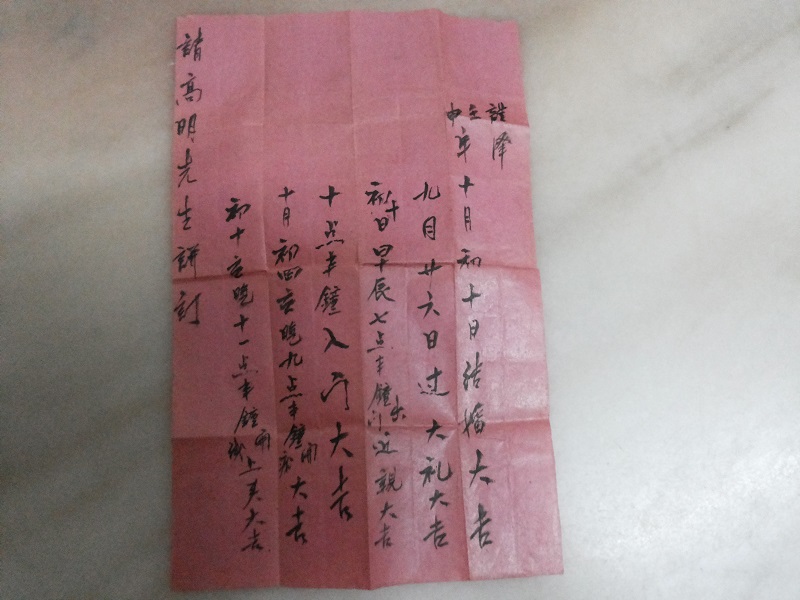 謹擇
壬申年十月初十日结婚大吉
九月廿六日过大礼大吉
初十日早辰七点半鐘出门迎親大吉
十点半鐘入门大吉
十月初四 晚九点半鐘 大吉
初十 晚十一点半鐘 上大吉
請高明先生 訂